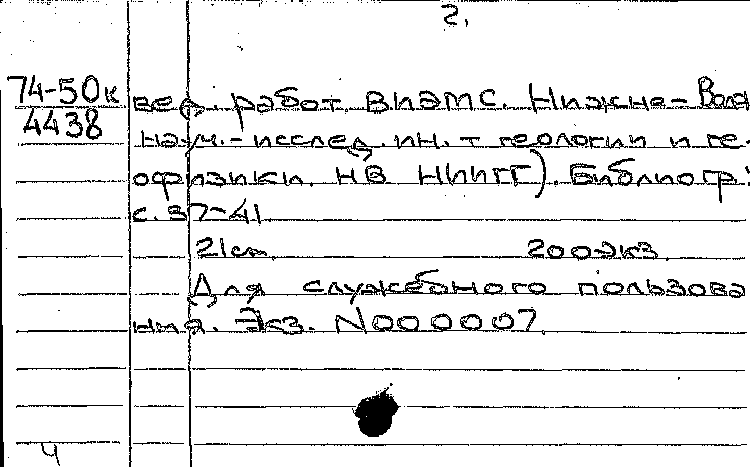 2.
74-50к
4438
вед. работ. ВИЭМС. Нижне-Волж
науч.-исслед. ин.-т геологии и ге-
офизики. НВ НИИГГ). Библиогр.:
с. 37-41.
21см. 200экз.
Для служебного пользова
ния. Экз. N000007.
Ч